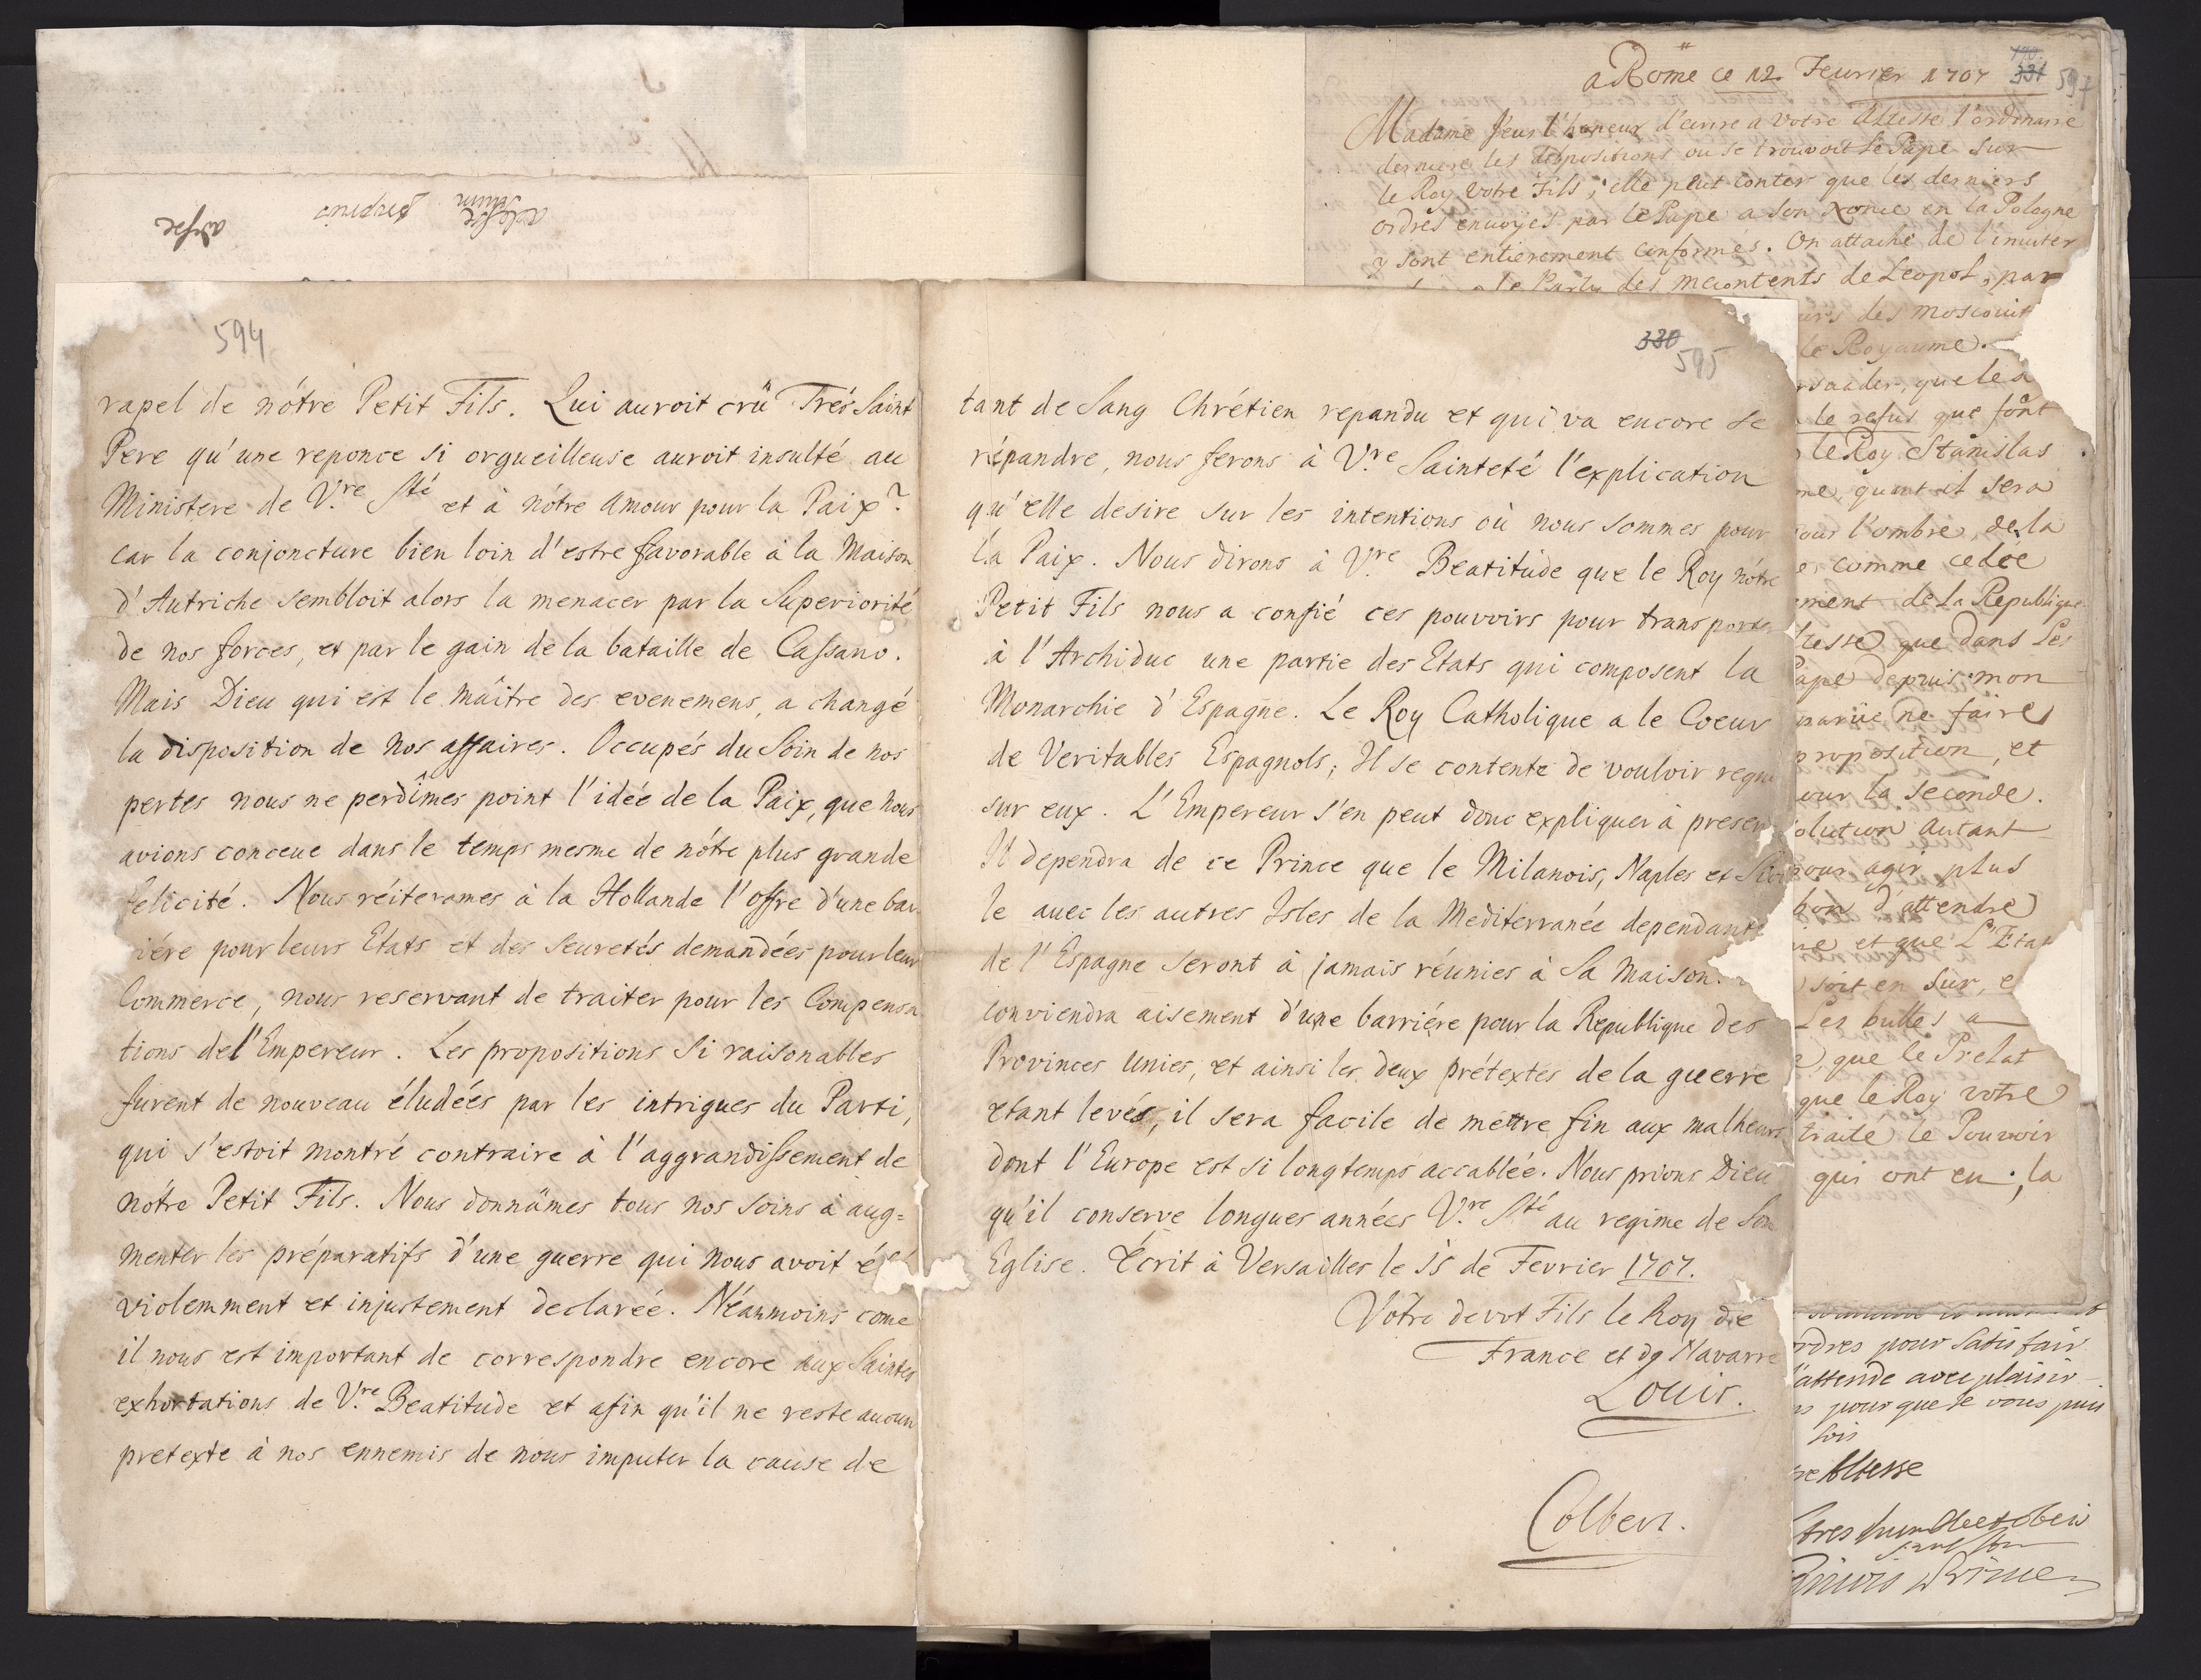 594
rapel de nôtre Petit Fils. Qui auroit crû Trés Saint
Pere qu'une reponce si orgueilleuse auroit insulté au
Ministere de V.re Sté et à nôtre amour pour la Paix?
car la conjoncture bien loin d'estre favorable à la Maison
d'Autriche sembloit alors la menacer par la Superiorité
de nos forces, et par le gain de la bataille de Cassano.
Mais Dieu qui est le maître des evenemens, a changé
la disposition de nos affaires. Occupés du Soin de nos
pertes nous ne perdîmes point l'idée de la Paix, que nous
avions conceue dans le temps mesme de nôtre plus grande
felicité. Nous réiterames à la Hollande l'offre d'une bar
riére pour leurs Etats et des seuretés demandées pour leur
Commerce, nous reservant de traiter pour les Compensa
tions de l'Empereur. Les propositions si raisonables
furent de nouveau éludées par les intrigues du Parti,
qui s'estoit montré contraire à l'aggrandissement de
nôtre Petit Fils. Nous donnâmes tous nos soins à aug=
menter les préparatifs d'une guerre qui nous avoit été
violemment et injustement declarée. Néanmoins come
il nous est important de correspondre encore aux Saintes
exhortations de V.re Beatitude et afin qu'il ne reste aucun
pretexte à nos ennemis de nous imputer la cause de
330
595
tant de Sang Chrétien repandu et qui va encore se
répandre, nous ferons à V.re Sainteté l'explication
qu'elle desire sur les intentions où nous sommes pour
la Paix. Nous dirons à V.re Beatitude que le Roy nôtre
Petit Fils nous a confié ces pouvoirs pour transporter
à l'Archiduc une partie des Etats qui composent la
Monarchie d'Espagne. Le Roy Catholique a le Coeur
de Veritables Espagnols; Il se contente de vouloir regn
sur eux. L'Empereur s'en peut donc expliquer à presen
Il dependra de ce Prince que le Milanois, Naples et Sici
le avec les autres Isles de la Mediterranée dependante
de l'Espagne seront à jamais réunies à Sa Maison.
conviendra aisement d'une barriére pour la Republique des
Provinces Unies, et ainsi les deux prétextes de la guerre
etant levés, il sera facile de mettre fin aux malheurs
dont l'Europe est si longtemps accablée. Nous prions Dieu
qu'il conserve longues années V.re Sté au regime de Son
Eglise. Écrit à Versailles le 15 de Fevrier 1707.
Vôtre devot Fils le Roy de
France et de Navarre
Louis.
Colbert.
a Rome ce 12 Feurier 1707
331
597
Madame J'eus l'honeur d'ecrire a Votre Altesse l'ordinaire
derniere les dispositions ou se trouvoit le Pape Sur
le Roy Votre Fils; elle peut conter que les derniers
ordres envoyes par le Pape a Son Nonce en la Pologne
y sont entierement conformes. On attache de l'imiter
le Party des mecontents de Leopol, par
des moscouit
le Royaume.
que les
le refus que font
le Roy Stanislas
me, quant il sera
l'ombre, de la
comme cedee
ement de la Republique
tesse que dans les
depuis mon
ne faire
proposition, et
our la Seconde.
olution autant
pour agir plus
bon d'attendre
et que L'Etat
soit en Sur, e
Les bulles a
que le Prelat
que le Roy votre
traité le Pouvoir
qui ont eu; la
ordres pour Satisfair
l'attende avec plaisir
pour que Je vous puis
Altesse